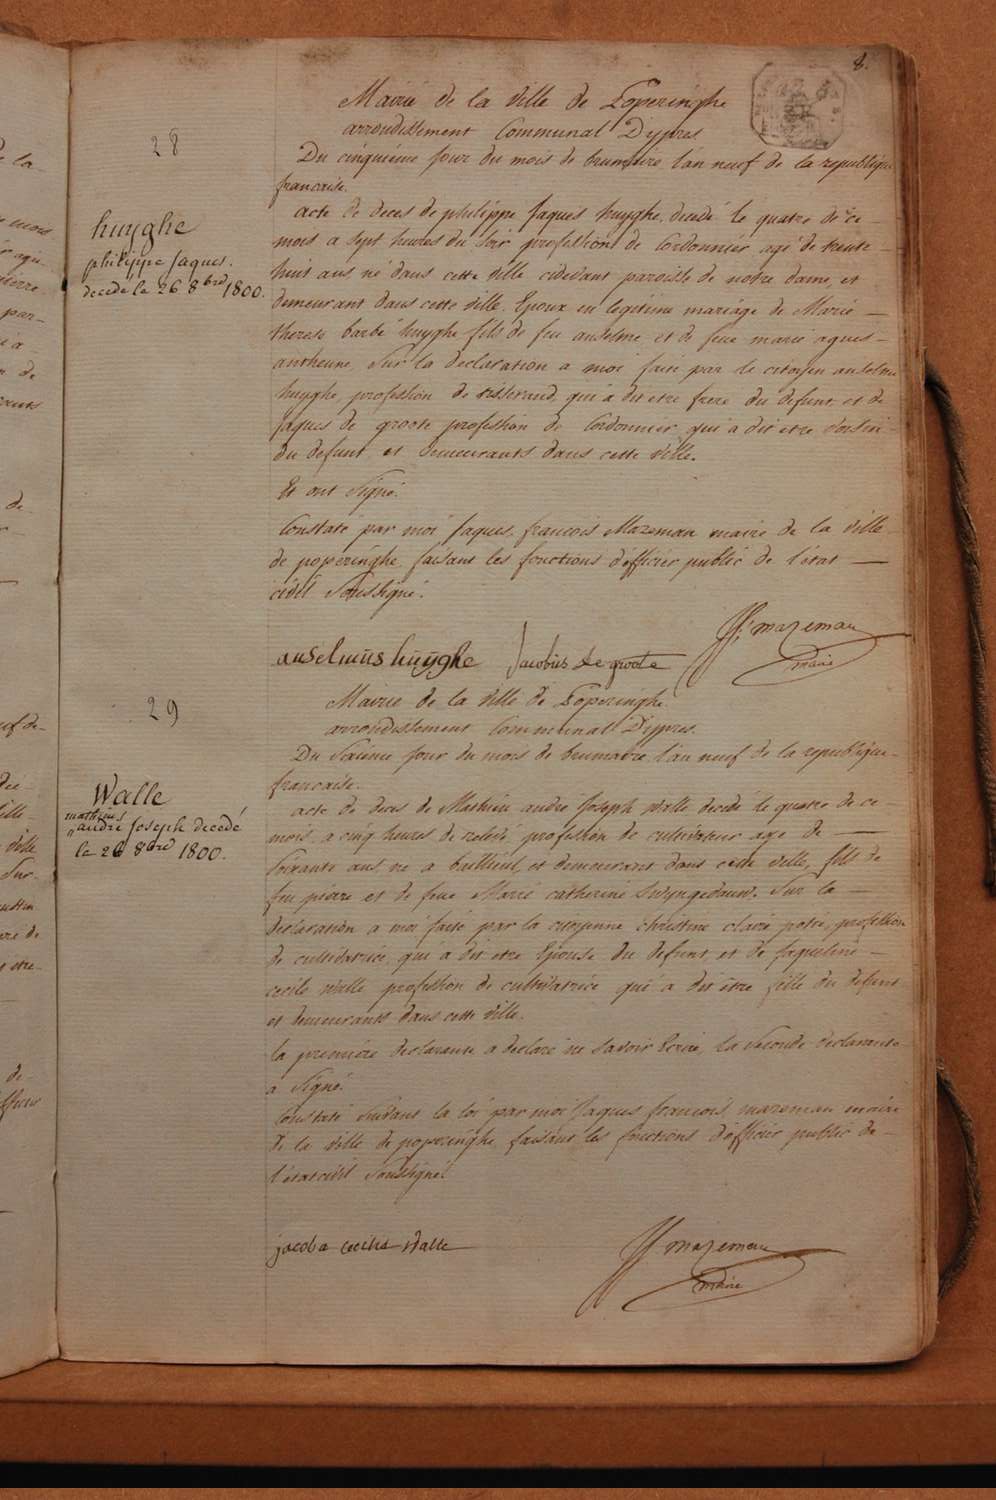 8.
Mairie de la ville de Poperinghe
arrondissement Communal D'ypres
28
Du cinquieme jour du mois de brumaire l'an neuf de la republique
francaise.
huyghe
philippe Jaques.
decedé le 26 8bre 1800.
acte de deces de philippe Jaques huyghe, decedé le quatre de ce
mois a sept heures du soir profession de Cordonnier agé de trente
huit ans né dans cette ville cidevant paroisse de notre dame, et
demeurant dans cette ville. Epoux en legitime mariage de Marie
therese barbe huyghe fils de feu anselme et de feue marie agnes
antheune, Sur la declaration a moi faite par le citoyen anselme
huyghe, profession de tisserand qui a dit etre frere du defunt et de
Jaques de groote profession de Cordonnier qui a dit etre voisin
du defunt et demeurants dans cette ville.
Et ont signé.
Constaté par moi Jaques francois Mazeman maire de la ville
de poperinghe faisant les fonctions d'officier public de l'état
civil soussigné.
anselmus huyghe Jacobus de groote
JF mazeman
maire
Mairie de la ville de Poperinghe
arrondissement Communal D'ypres.
29
Du sixieme jour du mois de brumaire l'an neuf de la republique
francaise.
Walle
mathieu
andré Joseph decedé
le 26 8bre 1800.
acte de deces de Mathieu andré Joseph walle decedé le quatre de ce
mois, a cinq heures de relevé, profession de cultivateur agé de
soixante ans, né a bailleul, et demeurant dans cette ville, fils de
feu pierre et de feue Marie catherine swyngedauw. Sur la
declaration a moi faite par la citoyenne christine claire potié, profession
de cultivatrice, qui a dit etre Epouse du defunt, et de Jaqueline
cecile walle profession de cultivatrice qui a dit être fille du defunt
et demeurants dans cette ville.
la premiére declarante a declaré ne savoir Ecrire, la seconde declarante
a signé.
Constaté suivant la loi par moi Jaques francois mazeman maire
de la ville de poperinghe faisant les fonctions d'officier public de
l'état civil soussigné.
jacoba cecilia Walle
JF mazeman
maire